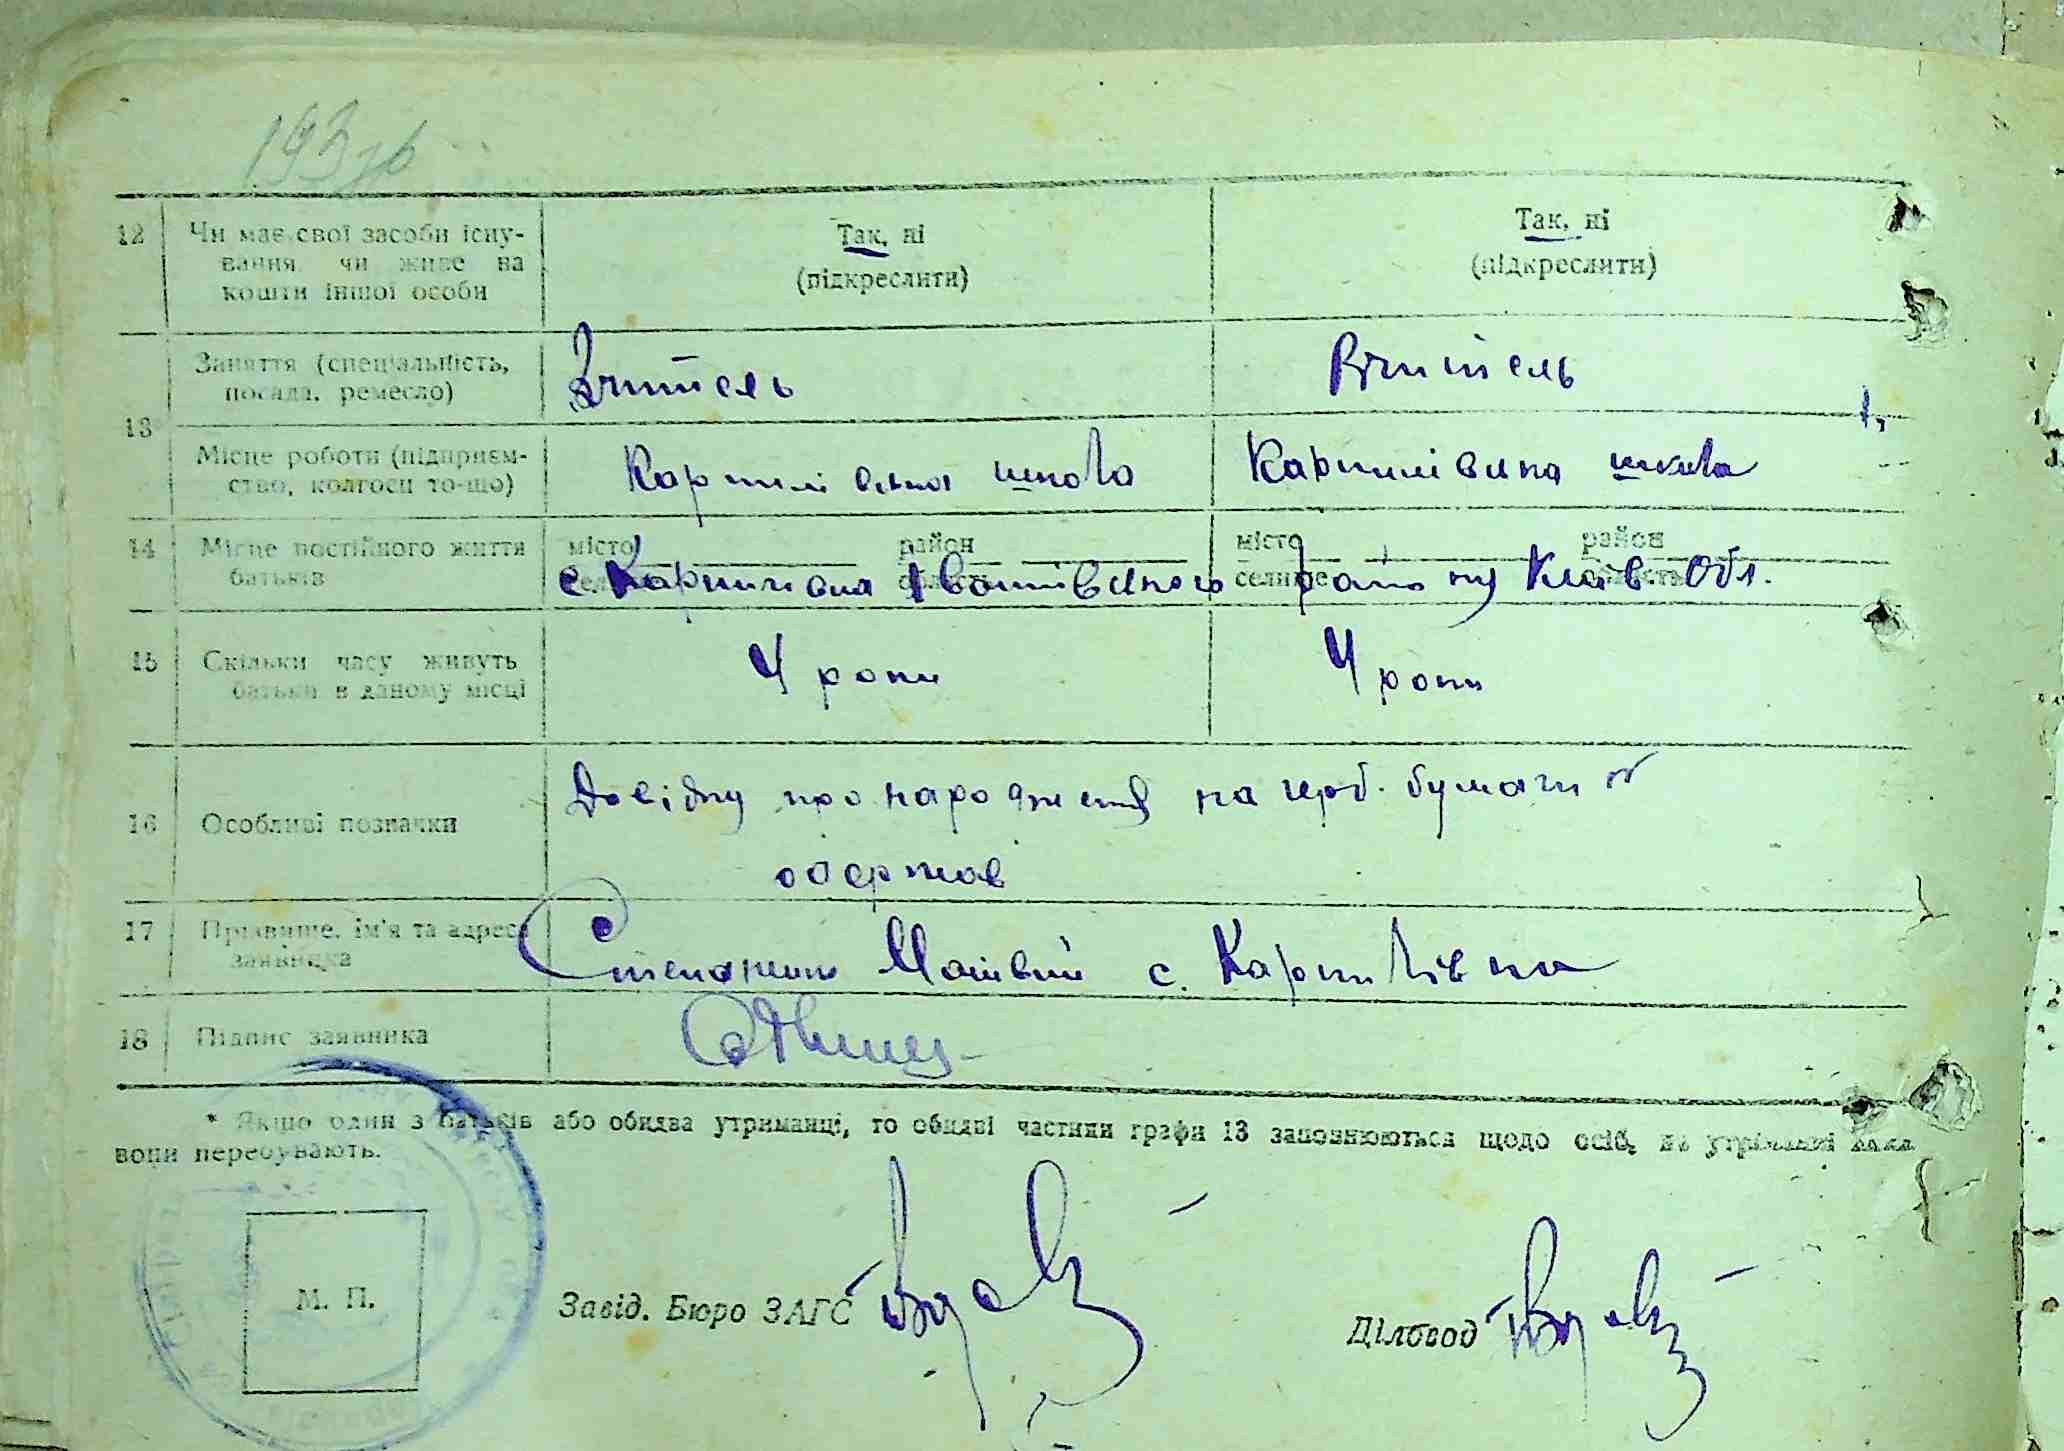 193зв
12 Чи має свої засоби існу- Так, ні Так, ні
вання чи живе на (підкреслити) (підкреслити)
кошти іншої особи
13 Заняття (спеціальність, Вчитель Вчитель
посада, ремесло)
Місце роботи (підприєм- Карпилівська школа Карпилівська школа
ство, колгосп то-що)
14 Місце постійного життя місто район місто район
батьків селище область селище область
с. Карпилівка Іванківського району Київ. Обл.
15 Скільки часу живуть 4 роки 4 роки
батьки в даному місці
16 Особливі позначки Довідку про народження на герб. бумаги
одержав
17 Прізвище, ім'я та адреса Матвій с. Карпилівка
заявника
18 Підпис заявника
* Якщо один з батьків або обидва утриманці, то обидві частини графи 13 заповнюються щодо осіб, на утриманні яких
вони перебувають.
М. П.
Завід. Бюро ЗАГС
Діловод